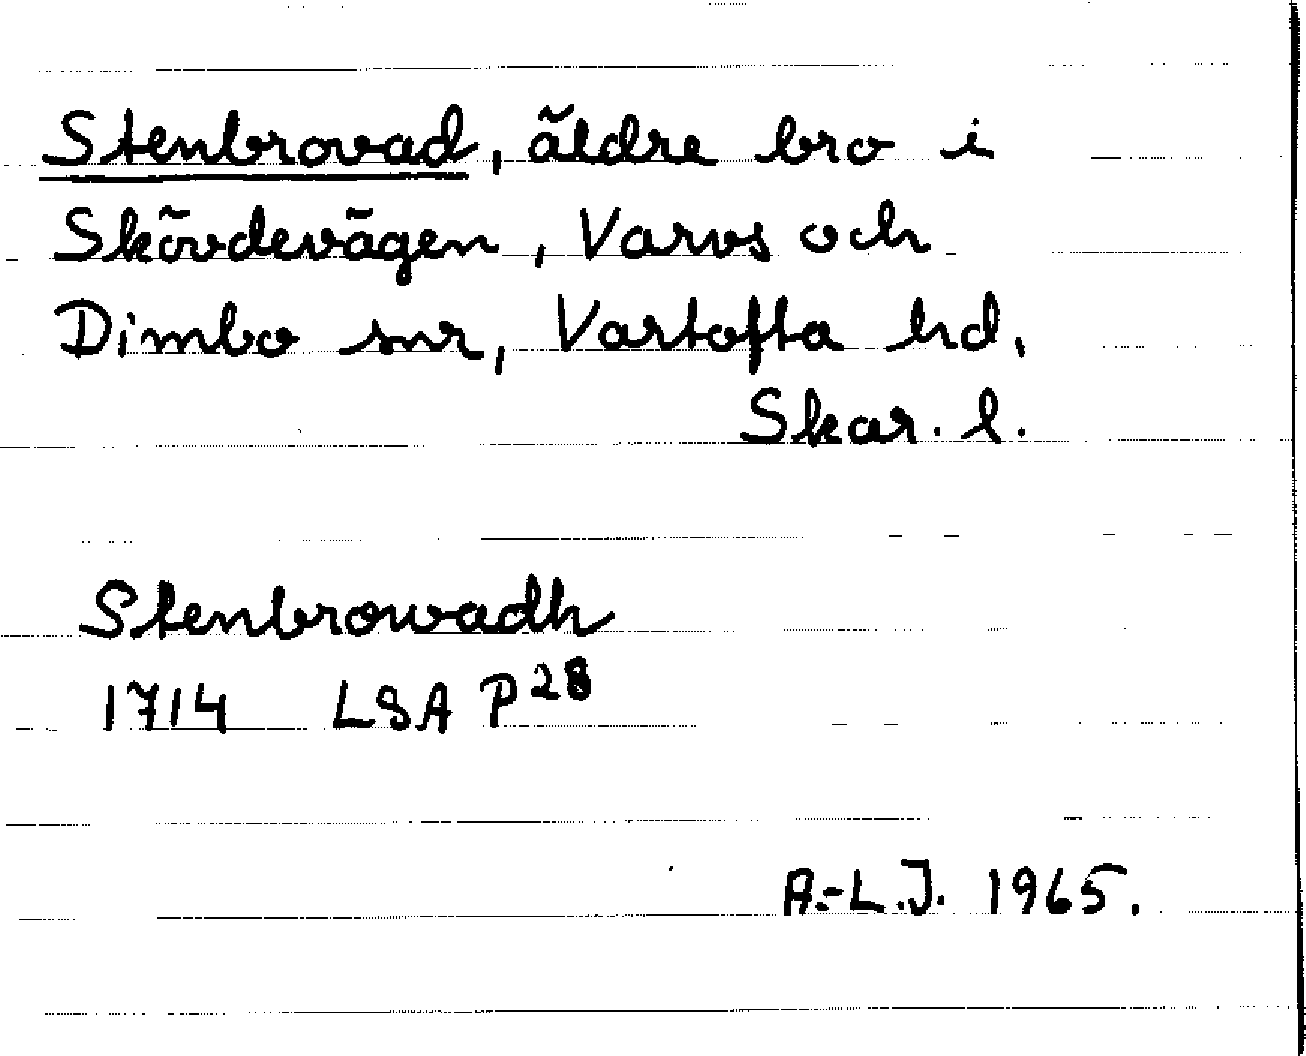 Stenbrovad, äldre bro i
Skövdevägen, Varvs och
Dimbo snr, Vartofta hd,
Skar. l.
Stenbrowadh
1714 LSA P28
A.-L.J. 1965.